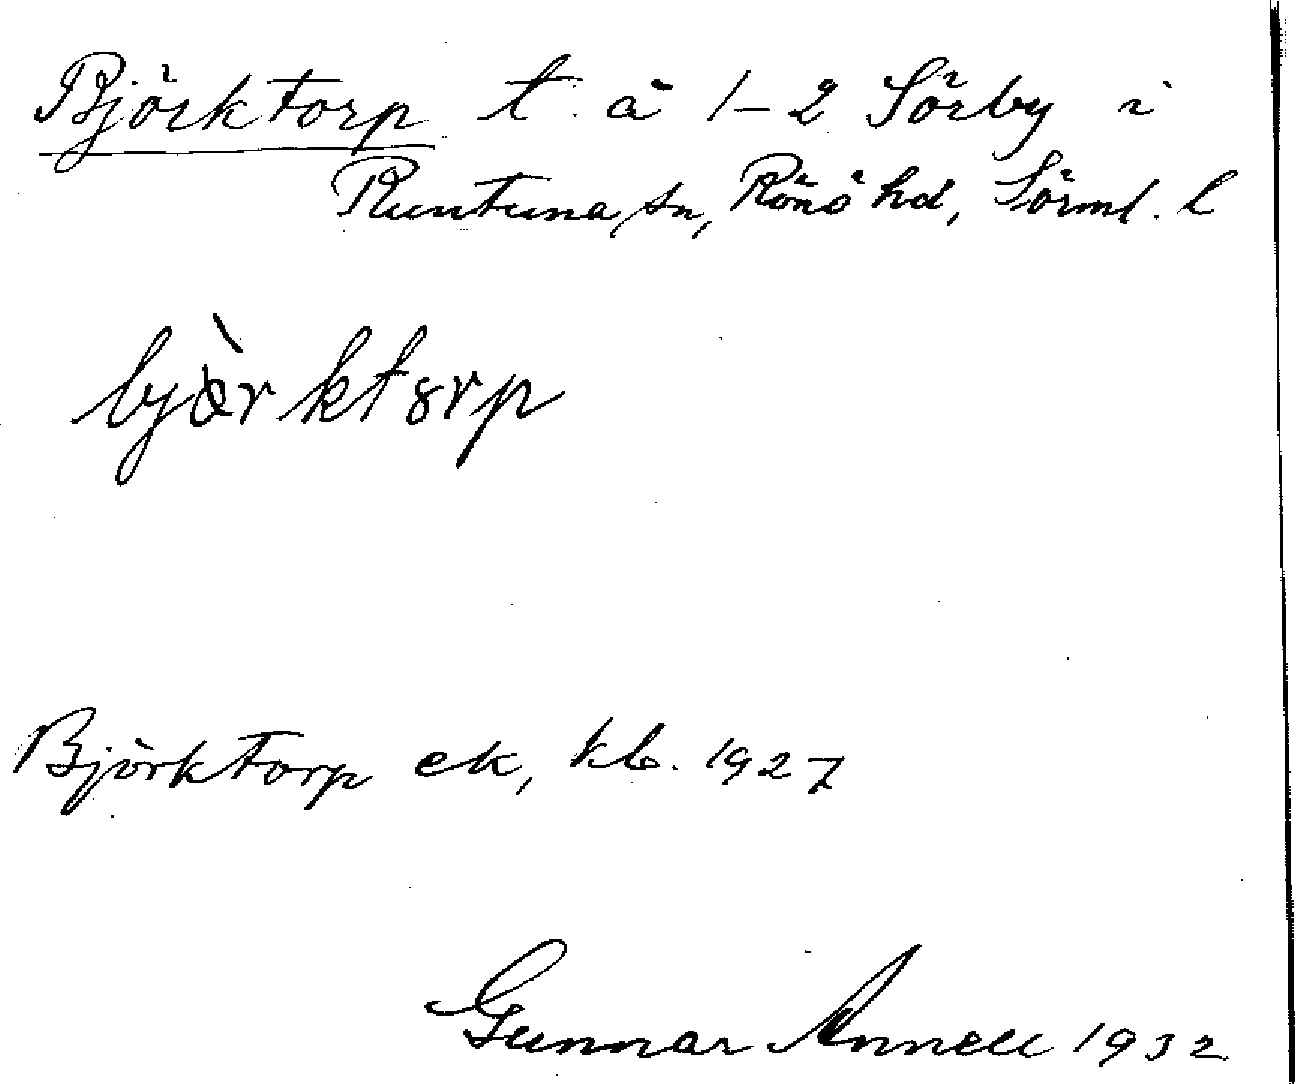 Björktorp t. å 1–2 Sörby i
Runtuna sn, Rönö hd, Sörml. l
bjὰrktorp
Björktorp ek, kb. 1927
Gunnar Annell 1932